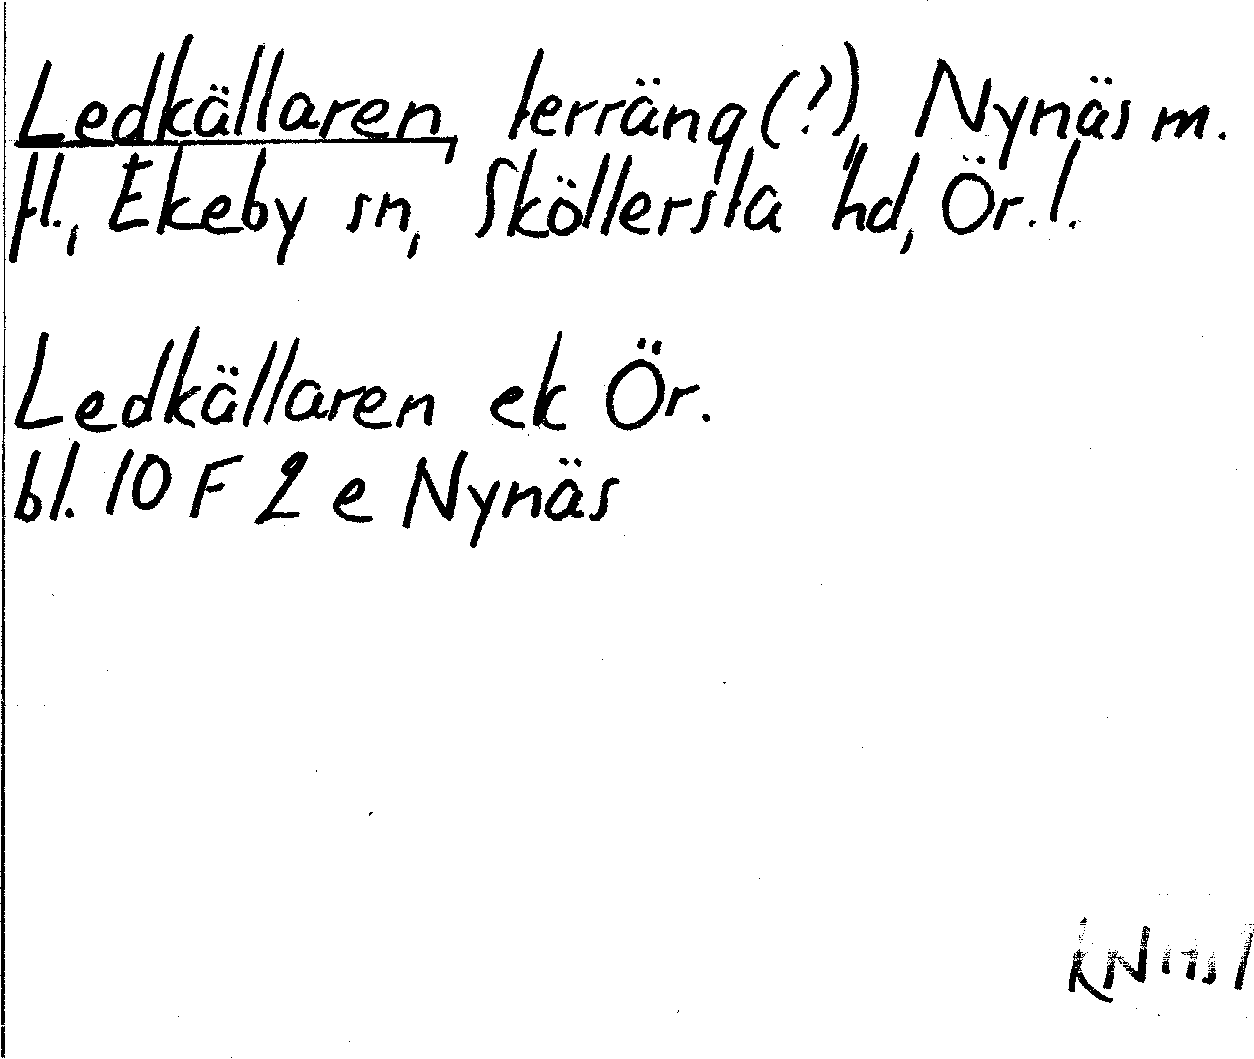 Ledkällaren, terräng (?), Nynäs m.
fl., Ekeby sn, Sköllersta hd, Ör. l.
Ledkällaren ek Ör.
bl. 10 F 2 e Nynäs